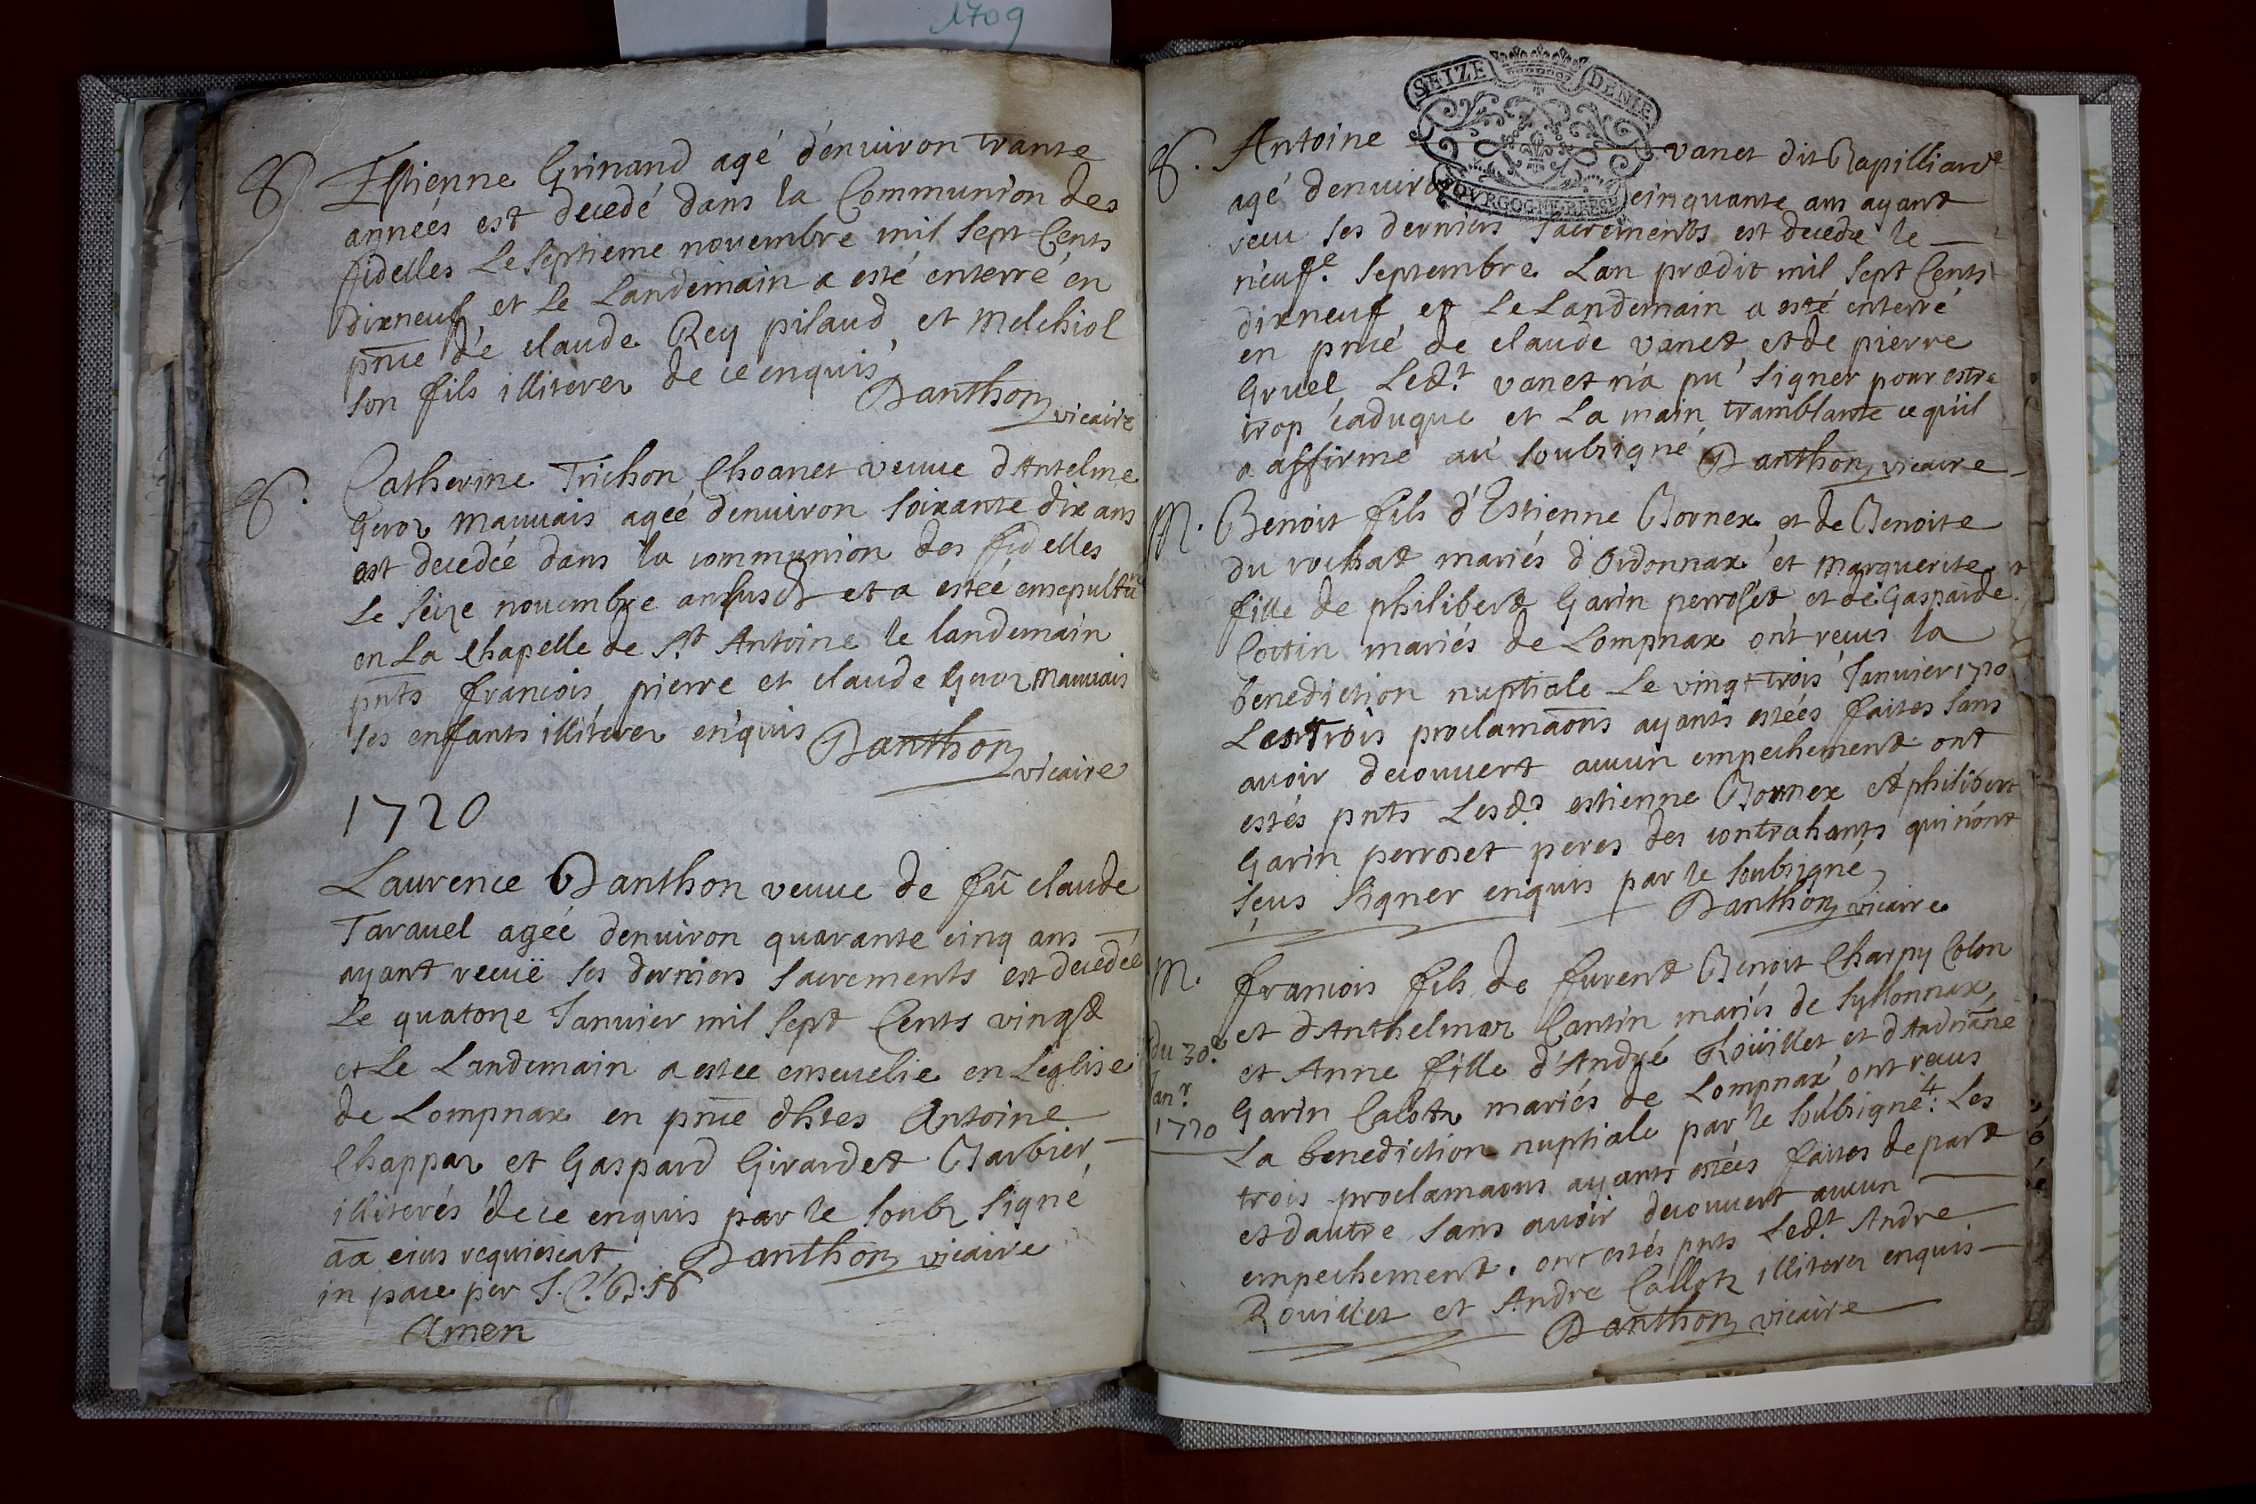 1709
8 Estienne Grinand agé d'enuiron trante
années est decedé dans la Communion des
fidelles Le septieme nouembre mil sept Cents
dixneuf et Le Landemain a esté enterré en
pnce de claude Rey pilaud et melchiol
son fils illiterez de ce enquis
Danthon vicaire
8. Catherine Trichon Choanet veuue d'Antelme
Geroz mauuais agée denuiron soixante dix ans
est decedée dans la communion des fidelles
Le seize nouembre an susdt et a estée ensepultu
en La Chapelle de St Antoine le landemain
pnts francois pierre et claude Geroz mauuais
ses enfants illiterez enquis Danthon
vicaire
1720
Laurence Danthon veuue de fû claude
Tarauel agée denuiron quarante cinq ans
ayant recuë ses derniers sacrements est decedée
Le quatorze Januier mil sept Cents vingt
et Le Landemain a estee enseuelie en L'eglise
de Lompnax en pnce dhtes Antoine
Chappaz et Gaspard Girardet Barbier
illiterés de ce enquis par le soubz signé
aa eius requiescat Danthon vicaire
in pace per J. C. D.
Amen
SEIZE DENIE
BOVRGOGNE BRESSE
8. Antoine vanet dit Rapilliard
agé denuiron cinquante ans ayant
recu ses derniers sacrements est decede le
neufe. septembre Lan prædit mil sept Cents
dixneuf et Le Landemain a esté enterré
en pnce de claude vanet et de pierre
Gruel Ledt vanet n'a pu signer pour estre
trop caduque et La main tramblante ce qu'il
a affirmé au soubsigné Danthon vicaire
M. Benoit fils d'Estienne Bornex et de Benoite
du rochat mariés d'Ordonnax et marguerite
fille de philibert Garin perroset et de Gasparde
Cottin mariés de Lompnax ont recus la
benediction nuptiale Le vingt trois Januier 1720
Les trois proclamaons ayants estées faites sans
auoir decouuert aucun empechement ont
estés pnts Lesds estienne Bornex et philibert
Garin perroset peres des contrahants qui n'ont
sçus signer enquis par le soubsigné
Danthon vicaire
M. francois fils de furent Benoit Charpy Colon
et d'Anthelmaz Cantin mariés de Syllonnax
du 30e et Anne fille d'André Roüillet et d'Andriane
Janr Garin Calotz mariés de Lompnax ont recus
1720 La benediction nuptiale par le soubsigné 4. Les
trois proclamaons ayants estées faites de part
et dautre sans auoir decouuert aucun
empechement. ont estés pnts Ledt Andre
Rouillet et Andre Callotz illiterez enquis
Danthon vicaire